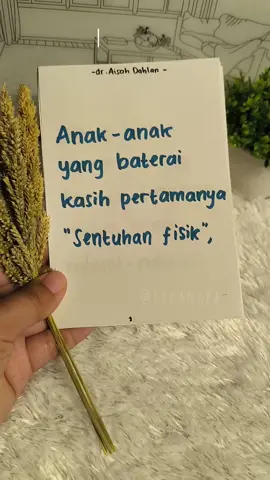 -dr. Aisah Dahlan -
Anak-anak
yang baterai
kasih pertamanya
"Sentuhan fisik",